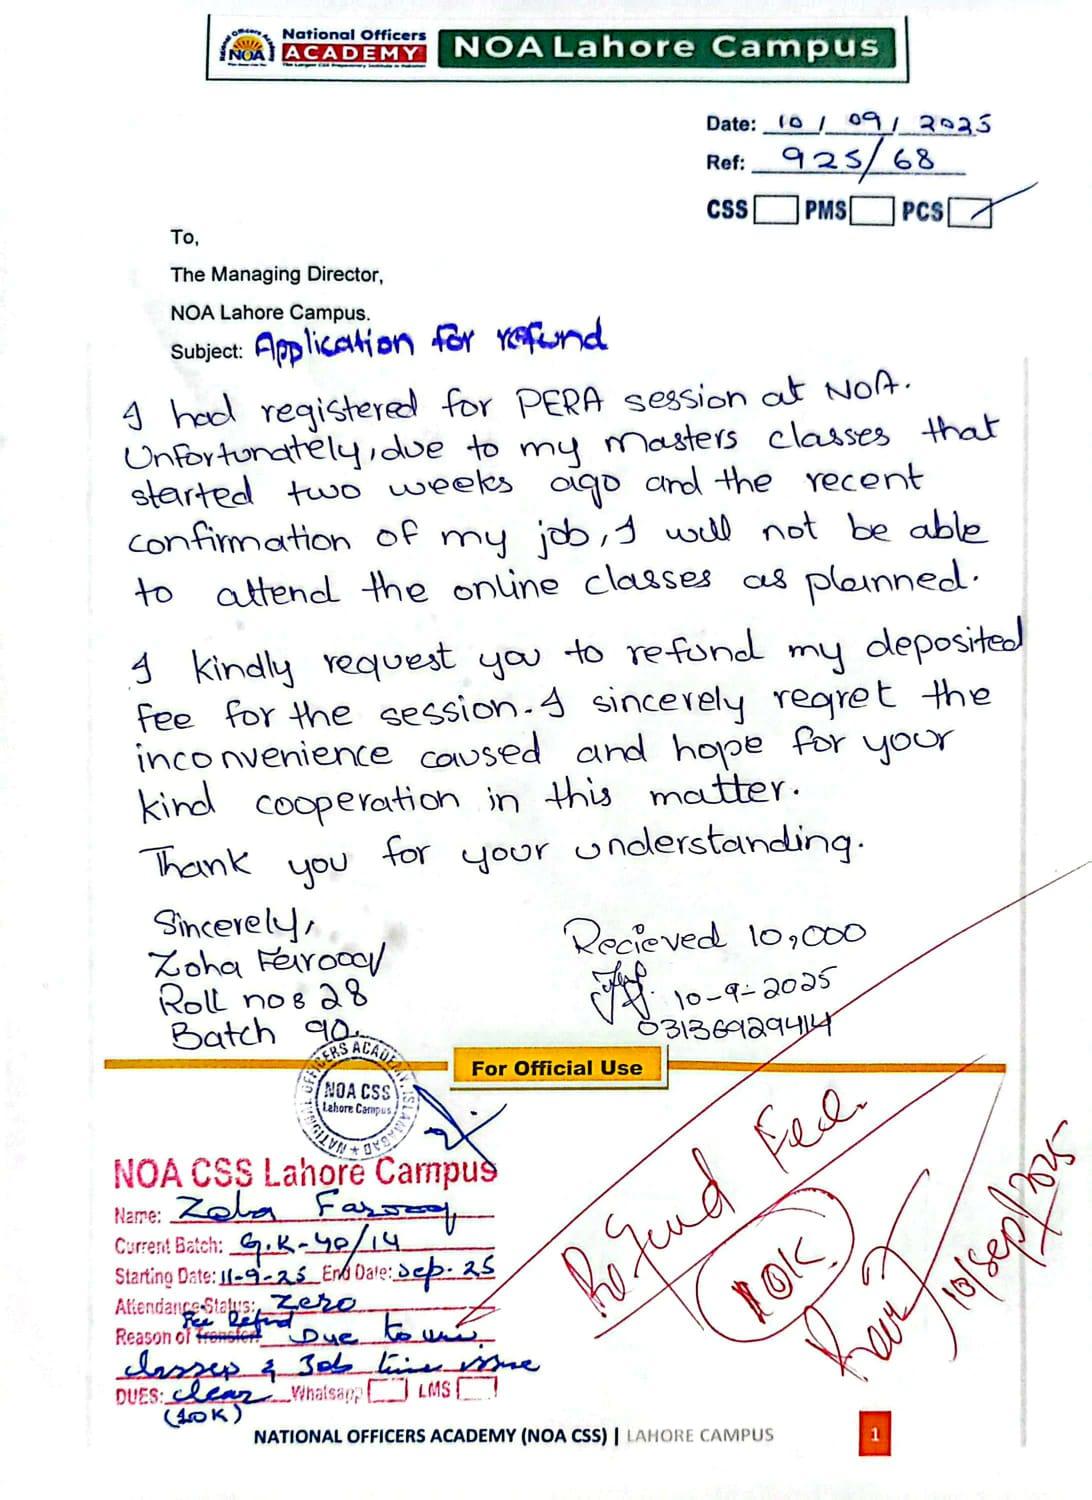 National Officers
ACADEMY
NOA
NOA Lahore Campus
Date: 10 / 09 / 2025
Ref: 925/68
CSS PMS PCS
To,
The Managing Director,
NOA Lahore Campus.
Subject: Application for refund
I had registered for PERA session at NOA.
Unfortunately, due to my Masters classes that
started two weeks ago and the recent
confirmation of my job, I will not be able
to attend the online classes as planned.
I kindly request you to refund my deposited
fee for the session. I sincerely regret the
inconvenience caused and hope for your
kind cooperation in this matter.
Thank you for your understanding.
Sincerely,
Zoha Farooq
Roll no : 28
Batch 90
Recieved 10,000
10-9-2025
03136929414
For Official Use
NATIONAL OFFICERS ACADEMY, ISLAMABAD
NOA CSS
Lahore Campus
NOA CSS Lahore Campus
Name: Zoha Farooq
Current Batch: G.K-40/14
Starting Date: 11-9-25 End Date: Sep. 25
Attendance Status: Zero
Fee Refund
Reason of Transfer: Due to uni
classes & Job time issue
DUES: clear Whatsapp LMS
(10K)
Refund Fee.
10K
10/Sep/2025
NATIONAL OFFICERS ACADEMY (NOA CSS) | LAHORE CAMPUS
1